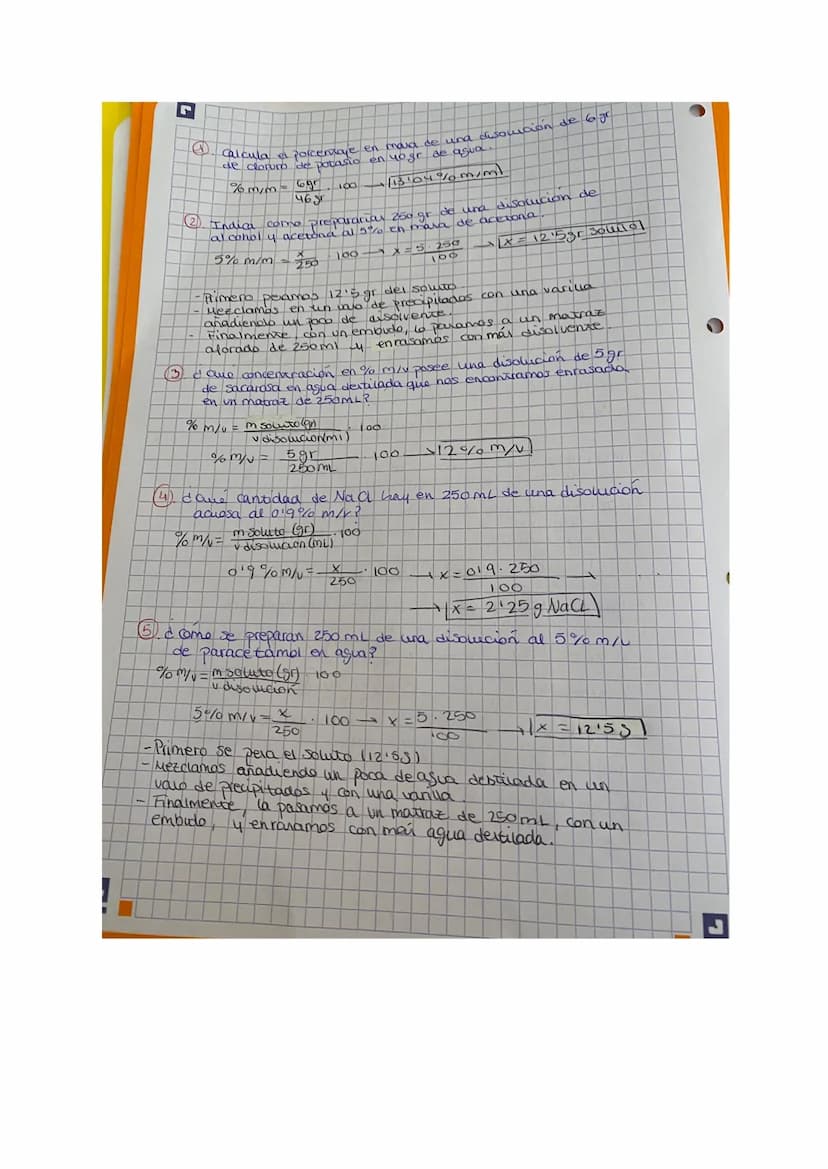 ① Calcula el porcentaje en masa de una disolución de 6 gr
de cloruro de potasio en 40 gr de agua.
% m/m = 6gr / 46 gr · 100 → 13'04 % m/m
② Indica como prepararías 250 gr de una disolución de
alcohol y acetona al 5% en masa de acetona.
5% m/m = x / 250 · 100 → x = 5 · 250 / 100 → x = 12'5gr soluto
- Primero pesamos 12'5 gr del soluto
- Mezclamos en un vaso de precipitados con una varilla
añadiendo un poco de disolvente.
- Finalmente, con un embudo, lo pasamos a un matraz
aforado de 250ml y enrasamos con más disolvente.
③ ¿Que concentración en % m/v posee una disolución de 5gr
de sacarosa en agua destilada que nos encontramos enrasada
en un matraz de 250mL?
% m/v = m soluto (gr) / v disolución (ml) · 100
% m/v = 5gr / 250mL · 100 → 2% m/v
④ ¿Qué cantidad de NaCl hay en 250 mL de una disolución
acuosa al 0'9% m/v?
% m/v = m soluto (gr) / v disolución (mL) · 100
0'9 % m/v = x / 250 · 100 → x = 0'9 · 250 / 100 →
→ x = 2'25 g NaCl
⑤ ¿Cómo se preparan 250 mL de una disolución al 5% m/v
de paracetamol en agua?
% m/v = m soluto (gr) / v disolución · 100
5% m/v = x / 250 · 100 → x = 5 · 250 / 100 → x = 12'5g
- Primero se pesa el soluto (12'5g)
- Mezclamos añadiendo un poca de agua destilada en un
vaso de precipitados y con una varilla.
- Finalmente, la pasamos a un matraz de 250mL, con un
embudo, y enrasamos con más agua destilada.